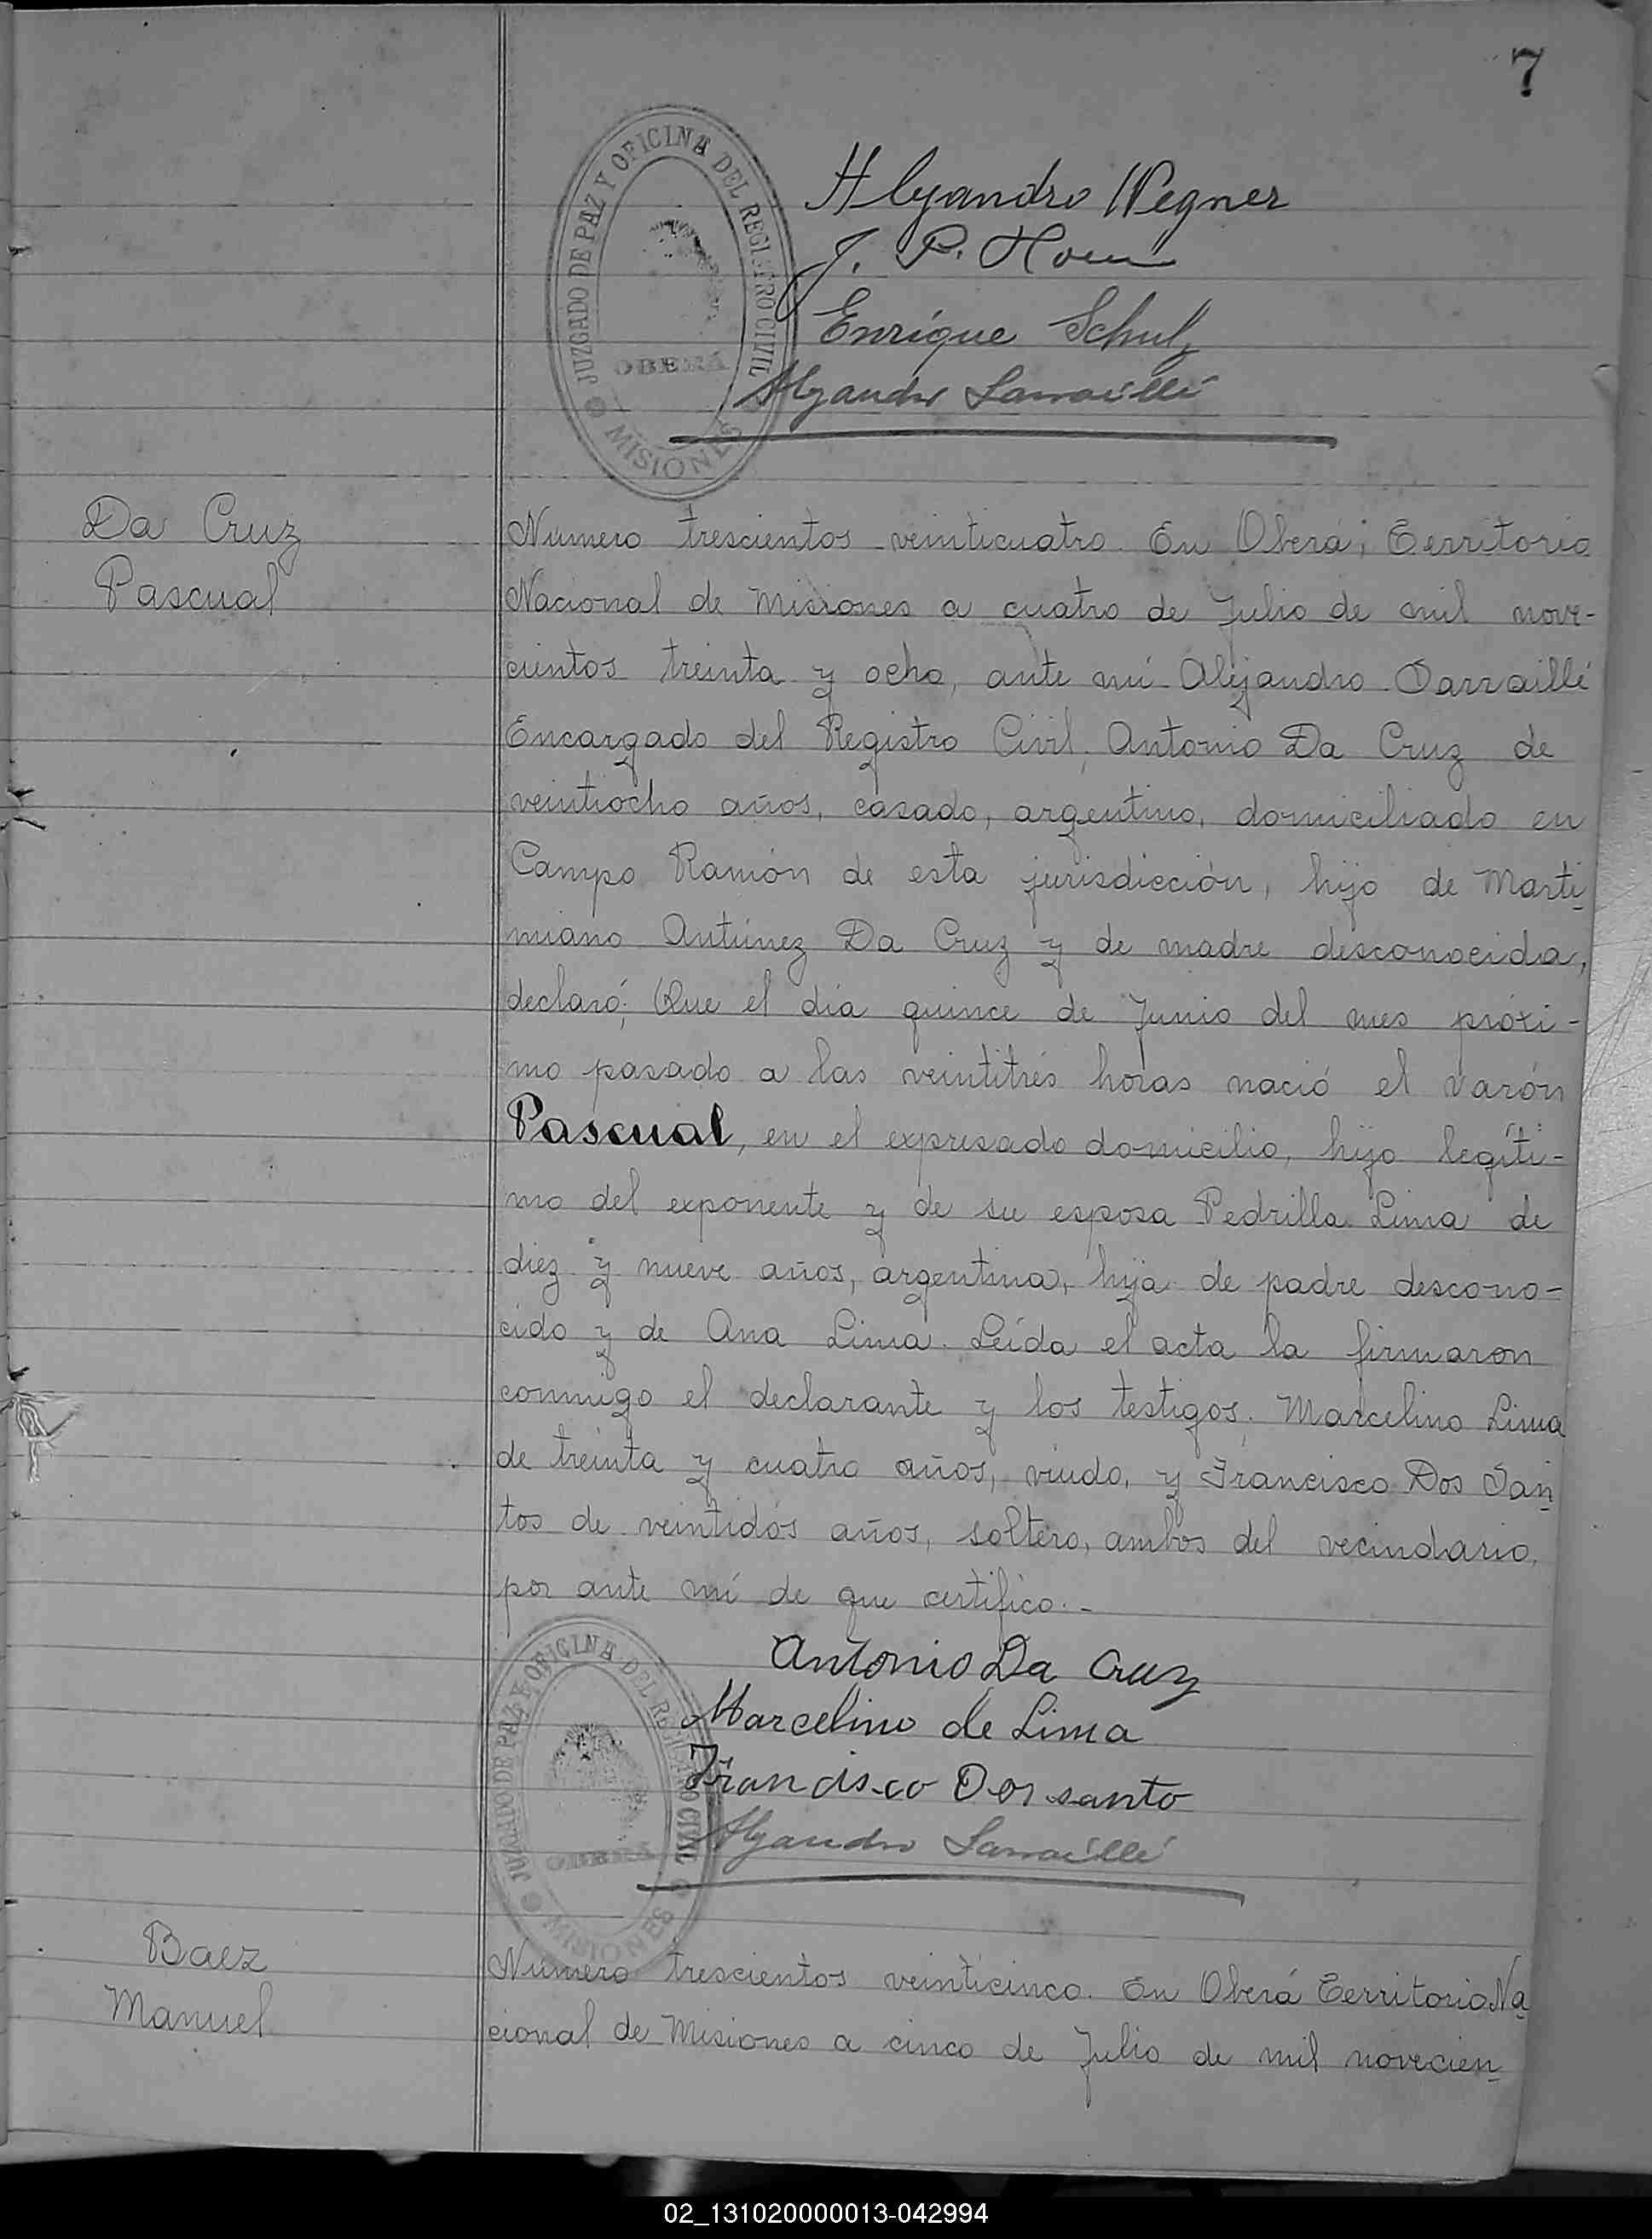 7
JUZGADO DE PAZ Y OFICINA DEL REGISTRO CIVIL
OBERÁ
MISIONES
Alejandro Wegner
J. P.
Enrique Schulz
Alejandro Sarraillé
Da Cruz
Pascual
Número trescientos veinticuatro. En Oberá, Territorio
Nacional de Misiones a cuatro de Julio de mil nove-
cientos treinta y ocho, ante mí Alejandro Sarraillé
Encargado del Registro Civil, Antonio Da Cruz de
veintiocho años, casado, argentino, domiciliado en
Campo Ramón de esta jurisdicción, hijo de Marti-
miano Antúnez Da Cruz y de madre desconocida,
declaró; Que el día quince de Junio del mes próxi-
mo pasado a las veintitrés horas nació el varón
Pascual, en el expresado domicilio, hijo legíti-
mo del exponente y de su esposa Pedrilla Lima de
diez y nueve años, argentina, hija de padre descono-
cido y de Ana Lima. Leída el acta la firmaron
conmigo el declarante y los testigos, Marcelino Lima
de treinta y cuatro años, viudo, y Francisco Dos San-
tos de veintidós años, soltero, ambos del vecindario,
por ante mí de que certifico.-
Antonio Da Cruz
Marcelino de Lima
Francisco Dos santo
Alejandro Sarraillé
JUZGADO DE PAZ Y OFICINA DEL REGISTRO CIVIL
OBERÁ
MISIONES
Baez
Manuel
Número trescientos veinticinco. En Oberá Territorio Na-
cional de Misiones a cinco de Julio de mil novecien-
02_131020000013-042994